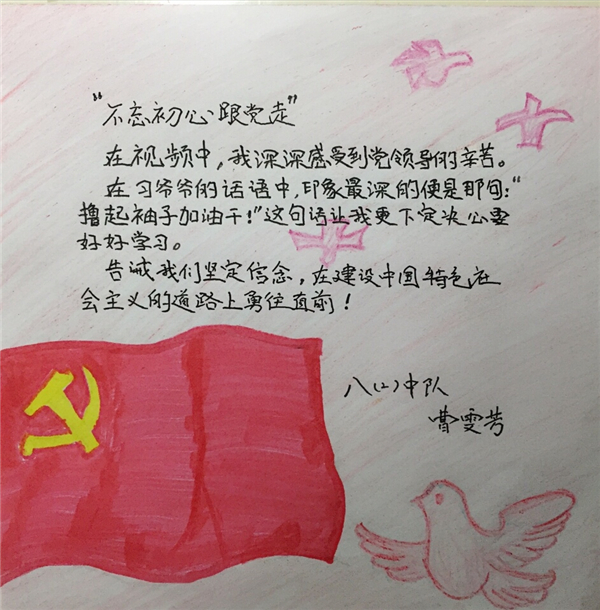 “不忘初心跟党走”
在视频中，我深深感受到党领导的辛苦。
在习爷爷的话语中，印象最深的便是那句：“
撸起袖子加油干！”这句话让我更下定决心要
好好学习。
告诫我们坚定信念，在建设中国特色社
会主义的道路上勇往直前！
八（2）中队
曹雯芳